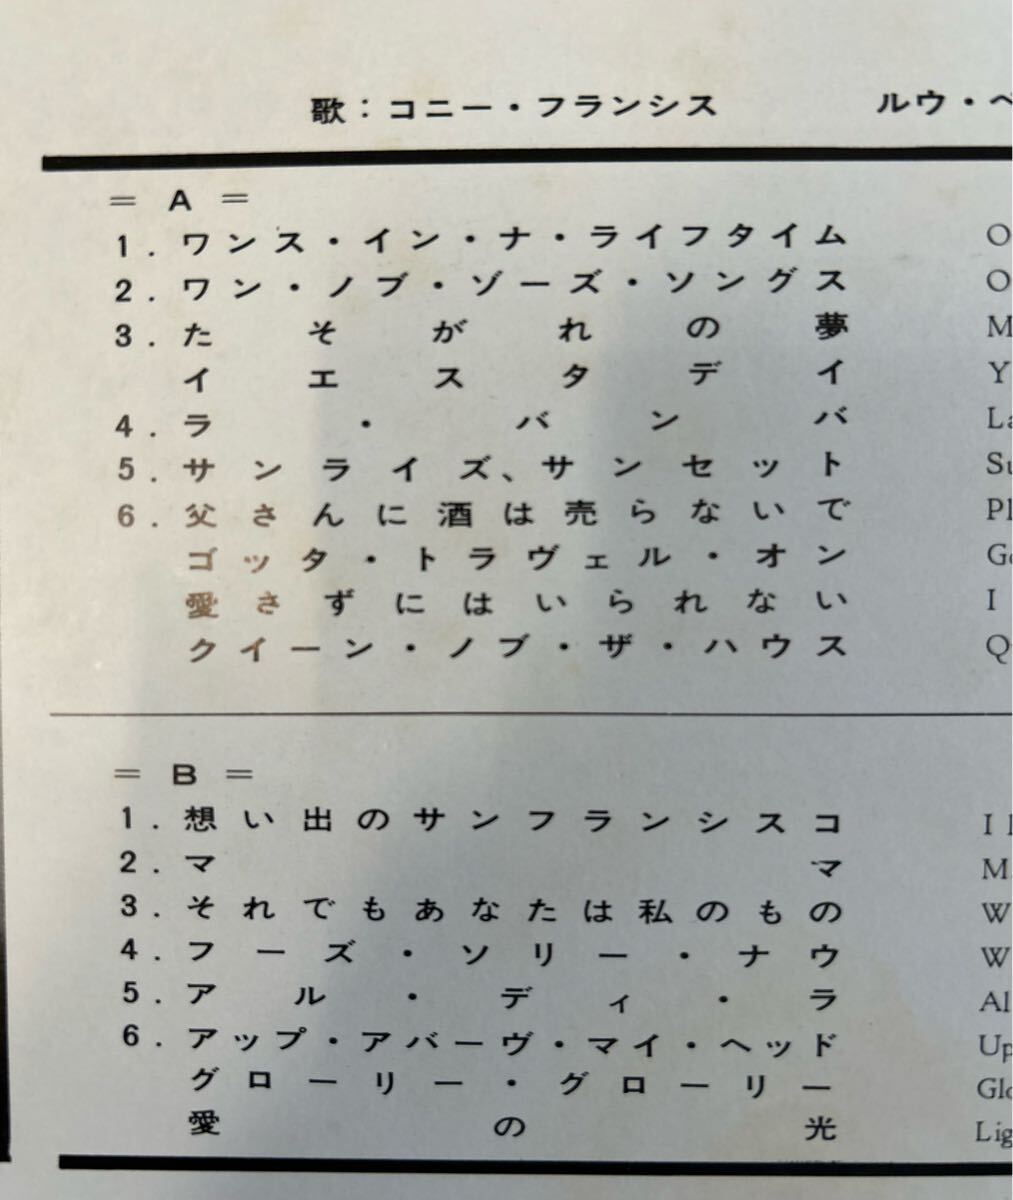 歌：コニー・フランシス ルウ・ペ
= A =
1. ワンス・イン・ナ・ライフタイム O
2. ワン・ノブ・ゾーズ・ソングス O
3. たそがれの夢 M
イエスタデイ Y
4. ラ・バンバ La
5. サンライズ、サンセット Su
6. 父さんに酒は売らないで Pl
ゴッタ・トラヴェル・オン Go
愛さずにはいられない I
クイーン・ノブ・ザ・ハウス Q
= B =
1. 想い出のサンフランシスコ I l
2. ママ M
3. それでもあなたは私のもの W
4. フーズ・ソリー・ナウ W
5. アル・ディ・ラ Al
6. アップ・アバーヴ・マイ・ヘッド Up
グローリー・グローリー Glo
愛の光 Lig